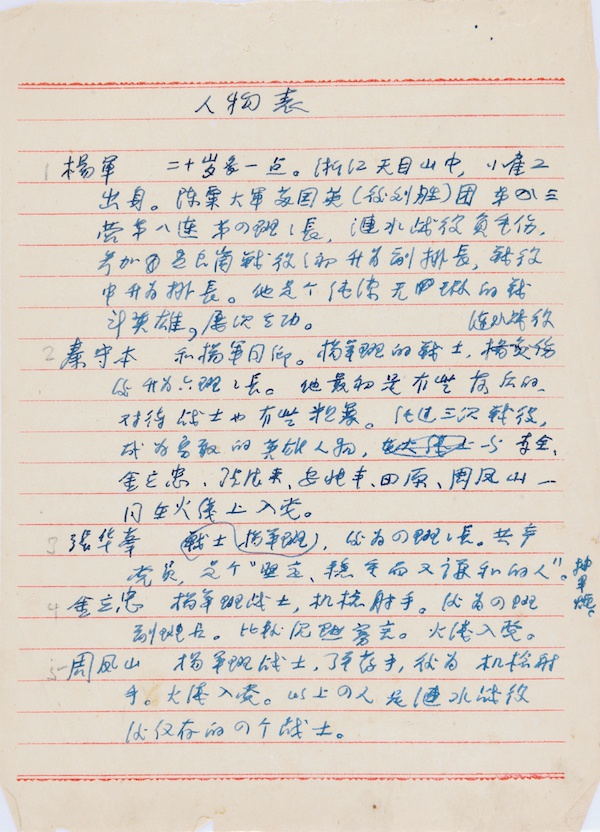 人物表
1 楊軍 二十岁多一点。浙江天目山中,小雇工
出身。陈粟大軍苏国英(後刘胜)团第三
营第八连第四班班長,漣水战役負重伤,
参加吐丝口崗戰役(初升为副排長,戰役
中升为排長。他是个纯洁无瑕的戰
斗英雄,屡次立功。
涟水战役
2 秦守本 和楊軍同鄉。楊軍班的战士,楊負伤
后升为六班班長。他最初是有些落后的,
对待战士也有些粗暴。经过三次戰役,
成为勇敢的英雄人物,与李全、
金立忠、张德来、安兆丰、田原、周凤山一
同在火线上入党。
3 張华峯 战士(楊軍班),后为四班班長。共产
党员,是个"坚定、穩重而又謙和的人"。
抽旱烟。
4 金立忠 楊軍班战士,机枪射手。后为四班
副班長。比较沉默寡言。火线入党。
5 周凤山 楊軍班战士,弹药手,後为机枪射
手。火线入党。以上四人是漣水战役
后仅存的四个战士。